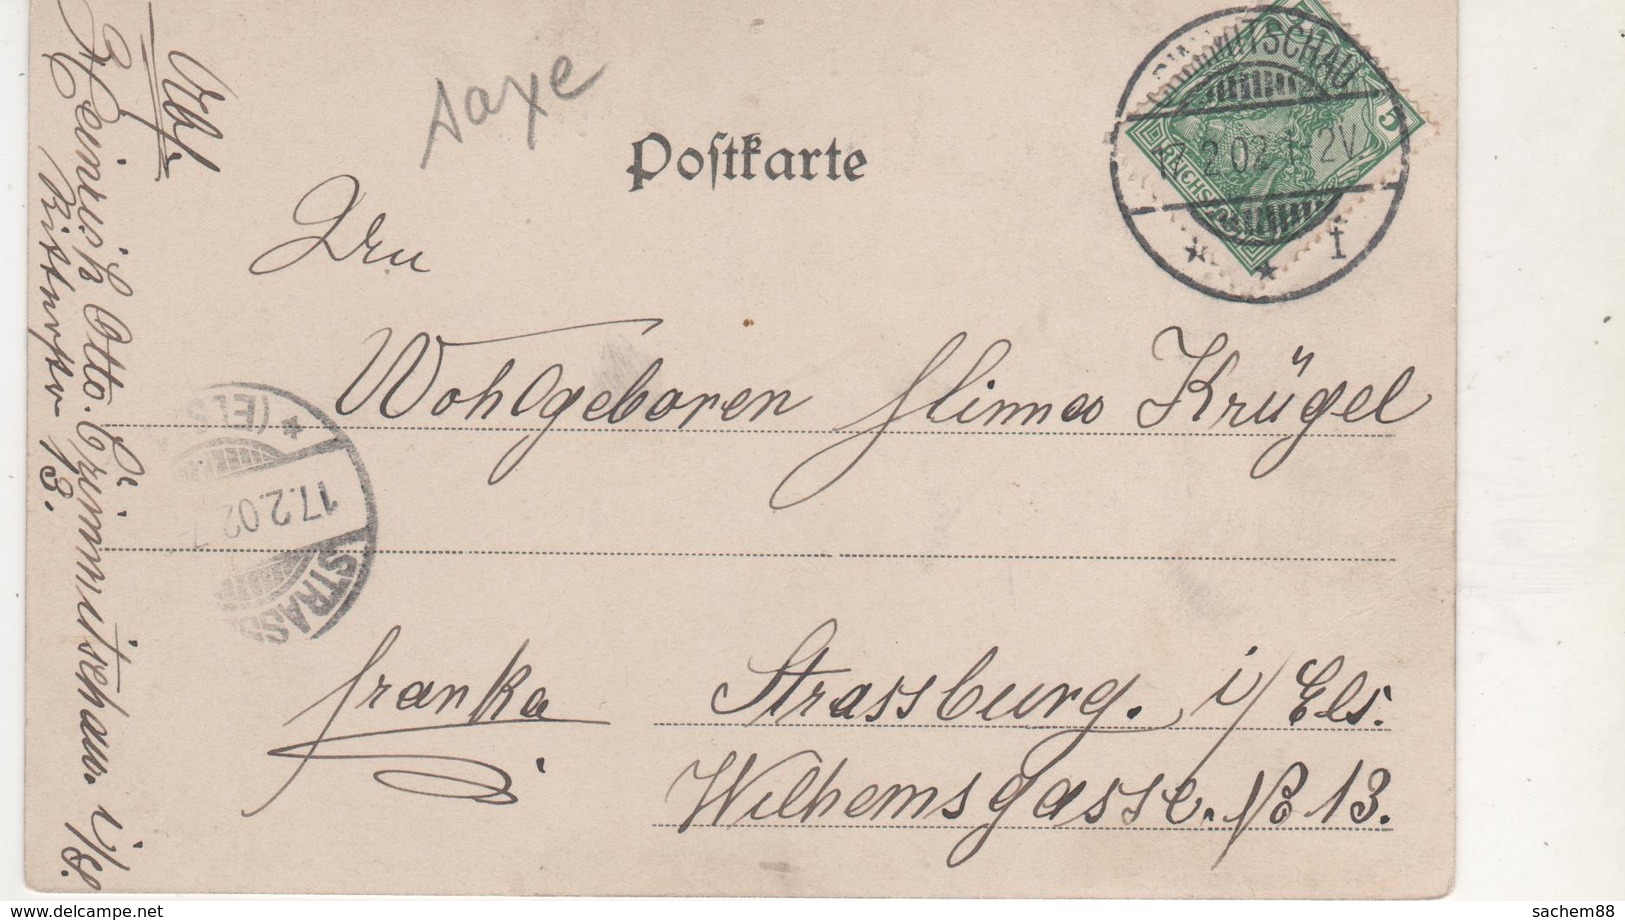 saxe
Postkarte
CRIMMITSCHAU
2.02.1-2V.
5
REICHSPOST
* * I
Wohlgeboren Krügel
franka
Strassburg. i/Els.
Wilhemsgasse. No 13.
Abs.
Heinrich Otto. Crimmitschau. i/S.
13.
STRASS
17.2.02.7
(ELS *
www.delcampe.net
sachem88